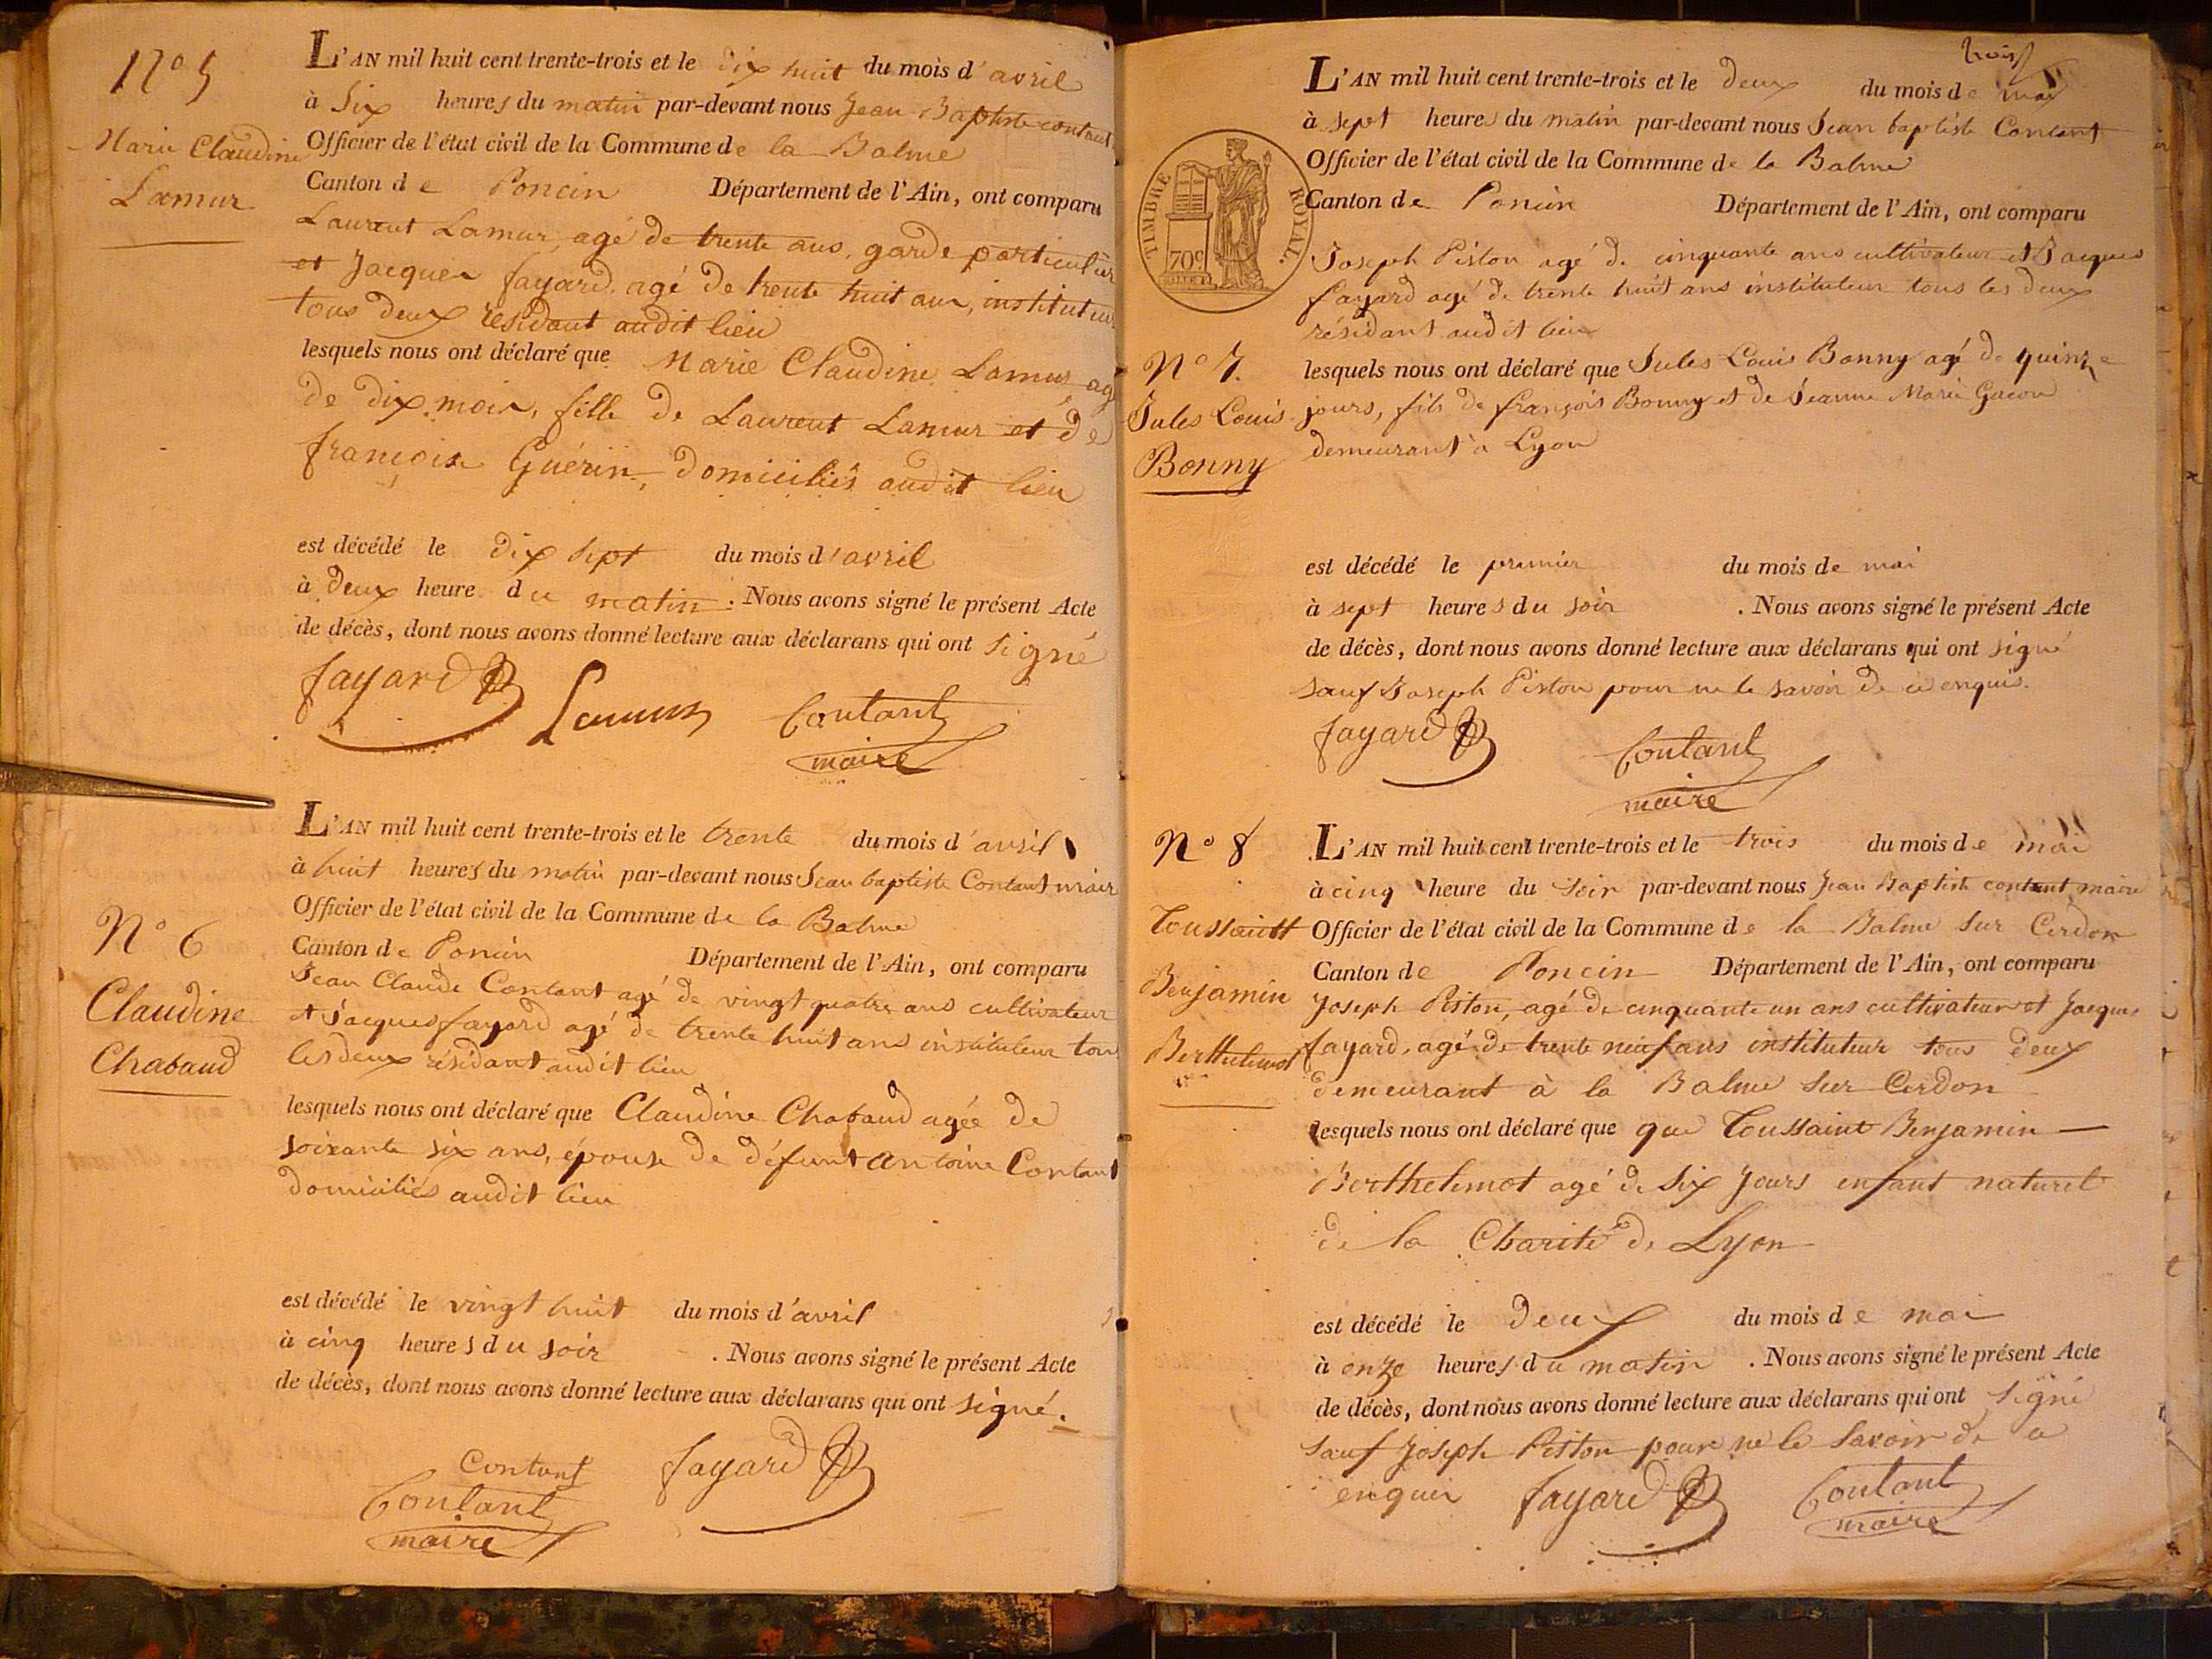 N° 5
Marie Claudine
Lamur
L'AN mil huit cent trente-trois et le dix huit du mois d'avril
à six heures du matin par-devant nous Jean Baptiste contant
Officier de l'état civil de la Commune de la Balme
Canton de Poncin Département de l'Ain, ont comparu
Laurent Lamur, agé de trente ans, garde particulier
et Jacques fayard, agé de trente huit ans, instituteur
tous deux résidant audit lieu
lesquels nous ont déclaré que Marie Claudine Lamur, ag
de dix mois, fille de Laurent Lamur et de
françoise Guérin, domiciliés audit lieu
est décédé le dix sept du mois d'avril
à deux heure du matin. Nous avons signé le présent Acte
de décès, dont nous avons donné lecture aux déclarans qui ont signé
fayard Lamur Contant
maire
N° 6
Claudine
Chabaud
L'AN mil huit cent trente-trois et le trente du mois d'avril
à huit heures du matin par-devant nous Jean baptiste Contant maire
Officier de l'état civil de la Commune de la Balme
Canton de Poncin Département de l'Ain, ont comparu
Jean Claude Contant agé de vingt quatre ans cultivateur
et Jacques fayard agé de trente huit ans instituteur tous
les deux résidant audit lieu
lesquels nous ont déclaré que Claudine Chabaud agée de
soixante six ans, épouse de défunt antoine Contant
domiciliés audit lieu
est décédé le vingt huit du mois d'avril
à cinq heures du soir . Nous avons signé le présent Acte
de décès, dont nous avons donné lecture aux déclarans qui ont signé.
Contant fayard
Contant
maire
trois
TIMBRE ROYAL.
70c
N° 7.
Jules Louis
Bonny
L'AN mil huit cent trente-trois et le deux du mois de mai
à sept heures du matin par-devant nous Jean baptiste Contant
Officier de l'état civil de la Commune de la Balme
Canton de Poncin Département de l'Ain, ont comparu
Joseph Piston agé de cinquante ans cultivateur et Jacques
fayard agé de trente huit ans instituteur tous les deux
résidant audit lieu
lesquels nous ont déclaré que Jules Louis Bonny agé de quinze
jours, fils de françois Bonny et de Jeanne Marie Gacon
demeurant à Lyon
est décédé le premier du mois de mai
à sept heures du soir . Nous avons signé le présent Acte
de décès, dont nous avons donné lecture aux déclarans qui ont signé
sauf Joseph Piston pour ne le savoir de ce enquis.
fayard Contant
maire
N° 8
Toussaint
Benjamin
Berthelemot
L'AN mil huit cent trente-trois et le trois du mois de mai
à cinq heure du soir par-devant nous Jean Baptiste contant, maire
Officier de l'état civil de la Commune de la Balme sur Cerdon
Canton de Poncin Département de l'Ain, ont comparu
Joseph Piston, agé de cinquante un ans cultivateur et Jacques
fayard, agé de trente neuf ans instituteur tous deux
demeurant à la Balme sur Cerdon
lesquels nous ont déclaré que que Toussaint Benjamin —
Berthelemot agé de six jours enfant naturel
de la Charité de Lyon
est décédé le deux du mois de mai
à onze heures du matin . Nous avons signé le présent Acte
de décès, dont nous avons donné lecture aux déclarans qui ont signé
sauf Joseph Piston pour ne le savoir de ce
enquis fayard Contant
maire